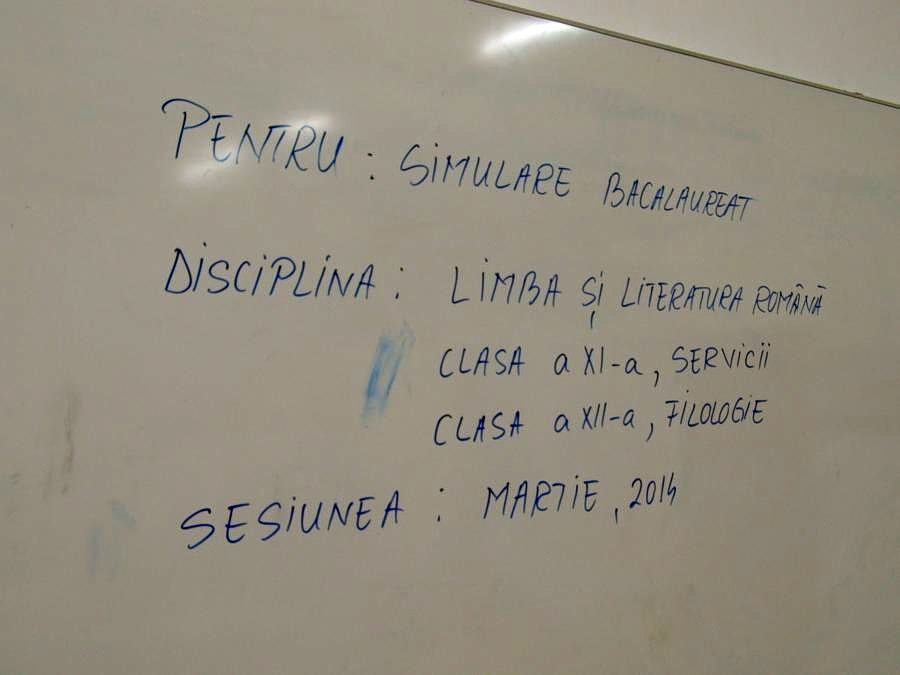 PENTRU : SIMULARE BACALAUREAT
DISCIPLINA : LIMBA ȘI LITERATURA ROMÂNĂ
CLASA a XI-a, SERVICII
CLASA a XII-a, FILOLOGIE
SESIUNEA : MARTIE, 2014